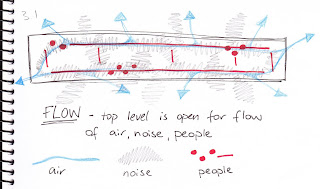 31
FLOW - top level is open for flow
of air, noise, people
air noise people